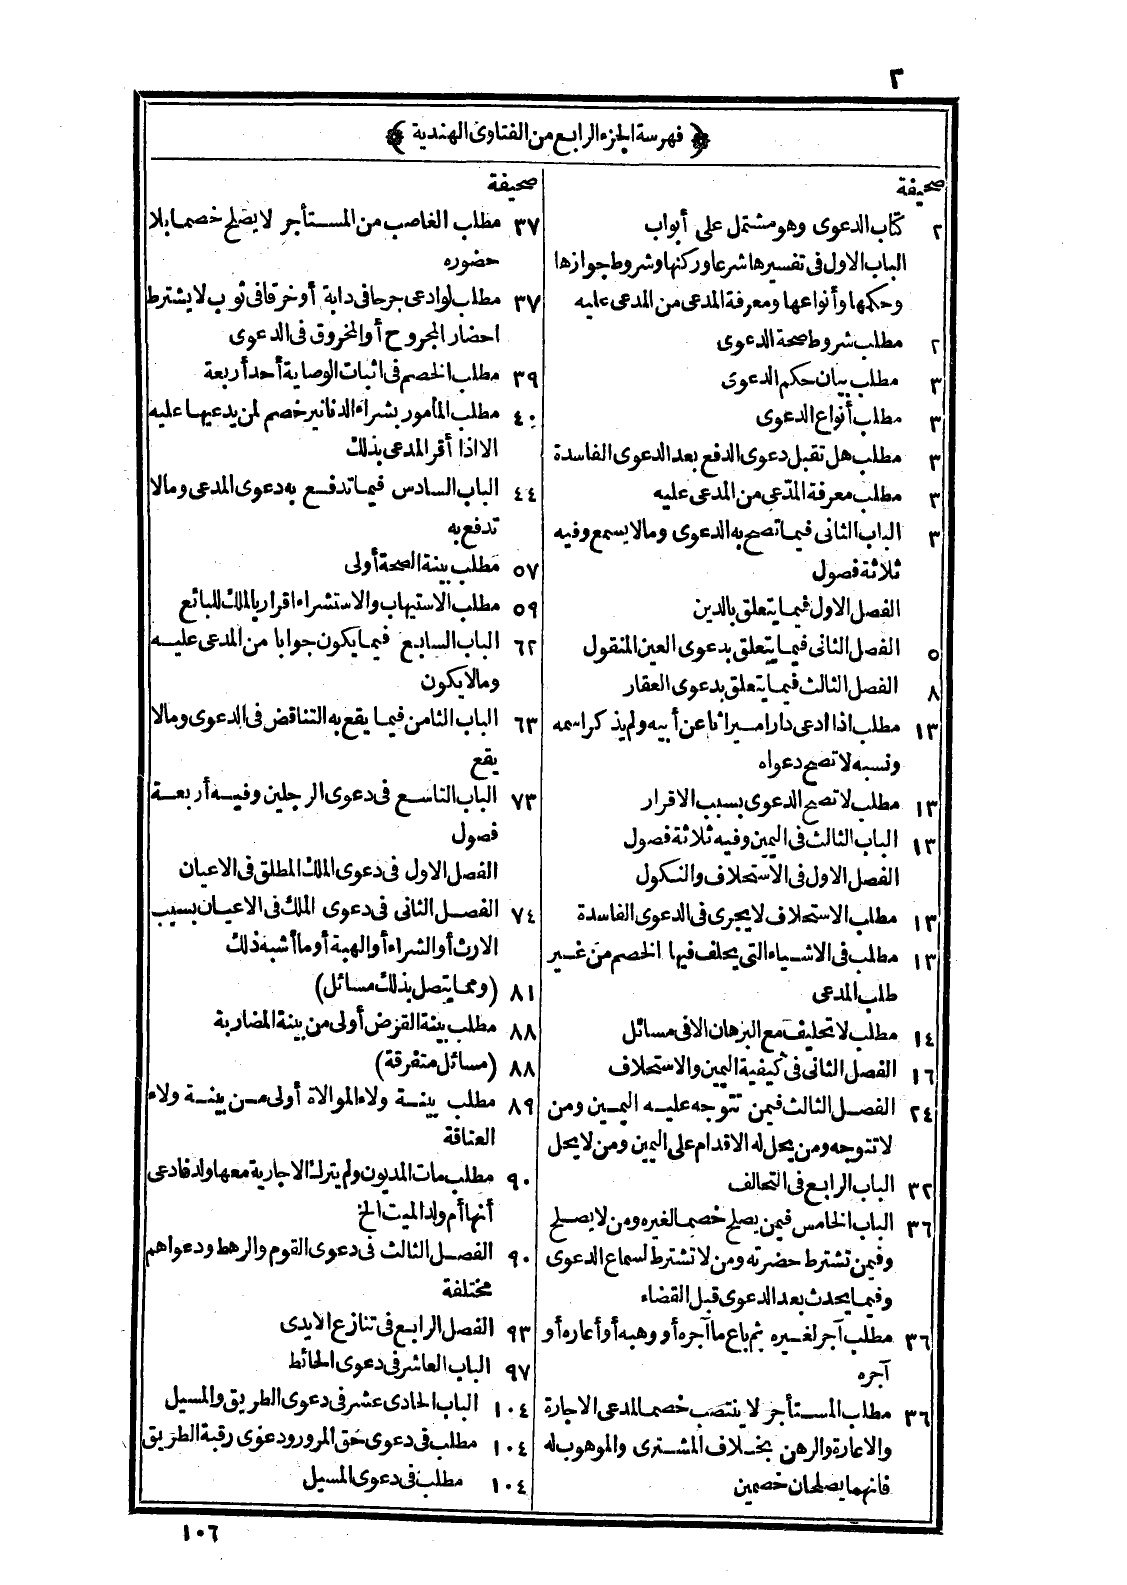 ٢
﴿ فهرسة الجزء الرابع من الفتاوى الهندية ﴾
صحيفة
٢ كتاب الدعوى وهو مشتمل على أبواب
الباب الاول فى تفسيرها شرعا وركنها وشروط جوازها
وحكمها وأنواعها ومعرفة المدعى من المدعى عليه
٢ مطلب شروط صحة الدعوى
٣ مطلب بيان حكم الدعوى
٣ مطلب أنواع الدعوى
٣ مطلب هل تقبل دعوى الدفع بعد الدعوى الفاسدة
٣ مطلب معرفة المدّعى من المدعى عليه
٣ الباب الثانى فيما تصح به الدعوى ومالا يسمع وفيه
ثلاثة فصول
الفصل الاول فيما يتعلق بالدين
٥ الفصل الثانى فيما يتعلق بدعوى العين المنقول
٨ الفصل الثالث فيما يتعلق بدعوى العقار
١٣ مطلب اذا ادعى دارا ميراثا عن أبيه ولم يذكر اسمه
ونسبه لا تصح دعواه
١٣ مطلب لا تصح الدعوى بسبب الاقرار
١٣ الباب الثالث فى اليمين وفيه ثلاثة فصول
الفصل الاول فى الاستحلاف والنكول
١٣ مطلب الاستحلاف لا يجرى فى الدعوى الفاسدة
١٣ مطلب فى الاشياء التى يحلف فيها الخصم من غير
طلب المدعى
١٤ مطلب لا تحليف مع البرهان الا فى مسائل
١٦ الفصل الثانى فى كيفية اليمين والاستحلاف
٢٤ الفصل الثالث فيمن تتوجه عليه اليمين ومن
لا تتوجه ومن يحل له الاقدام على اليمين ومن لا يحل
٣٢ الباب الرابع فى التحالف
٣٦ الباب الخامس فيمن يصلح خصما لغيره ومن لا يصلح
وفيمن تشترط حضرته ومن لا تشترط لسماع الدعوى
وفيما يحدث بعد الدعوى قبل القضاء
٣٦ مطلب آجر لغيره ثم باع ما آجره أو وهبه أو أعاره أو
آجره
٣٦ مطلب المستأجر لا ينتصب خصما لمدعى الاجارة
والاعارة والرهن بخلاف المشترى والموهوب له
فانهما يصلحان خصمين
صحيفة
٣٧ مطلب الغاصب من المستأجر لا يصلح خصما بلا
حضوره
٣٧ مطلب لو ادعى جرحا فى دابة أو خرقا فى ثوب لا يشترط
احضار المجروح أو المخروق فى الدعوى
٣٩ مطلب الخصم فى اثبات الوصاية أحد أربعة
٤٠ مطلب المأمور بشراء الدنانير خصم لمن يدعيها عليه
الا اذا أقر المدعى بذلك
٤٤ الباب السادس فيما تدفع به دعوى المدعى ومالا
تدفع به
٥٧ مطلب بينة الصحة أولى
٥٩ مطلب الاستيهاب والاستشراء اقرار بالملك للبائع
٦٢ الباب السابع فيما يكون جوابا من المدعى عليه
ومالا يكون
٦٣ الباب الثامن فيما يقع به التناقض فى الدعوى ومالا
يقع
٧٣ الباب التاسع فى دعوى الرجلين وفيه أربعة
فصول
الفصل الاول فى دعوى الملك المطلق فى الاعيان
٧٤ الفصل الثانى فى دعوى الملك فى الاعيان بسبب
الارث أو الشراء أو الهبة أو ما أشبه ذلك
٨١ (ومما يتصل بذلك مسائل)
٨٨ مطلب بينة القرض أولى من بينة المضاربة
٨٨ (مسائل متفرقة)
٨٩ مطلب بينة ولاء الموالاة أولى من بينة ولاء
العتاقة
٩٠ مطلب مات المديون ولم يترك الا جارية معها ولد فادعى
أنها أم ولد الميت الخ
٩٠ الفصل الثالث فى دعوى القوم والرهط ودعواهم
مختلفة
٩٣ الفصل الرابع فى تنازع الايدى
٩٧ الباب العاشر فى دعوى الحائط
١٠٤ الباب الحادى عشر فى دعوى الطريق والمسيل
١٠٤ مطلب فى دعوى حق المرور ودعوى رقبة الطريق
١٠٤ مطلب فى دعوى المسيل
١٠٦